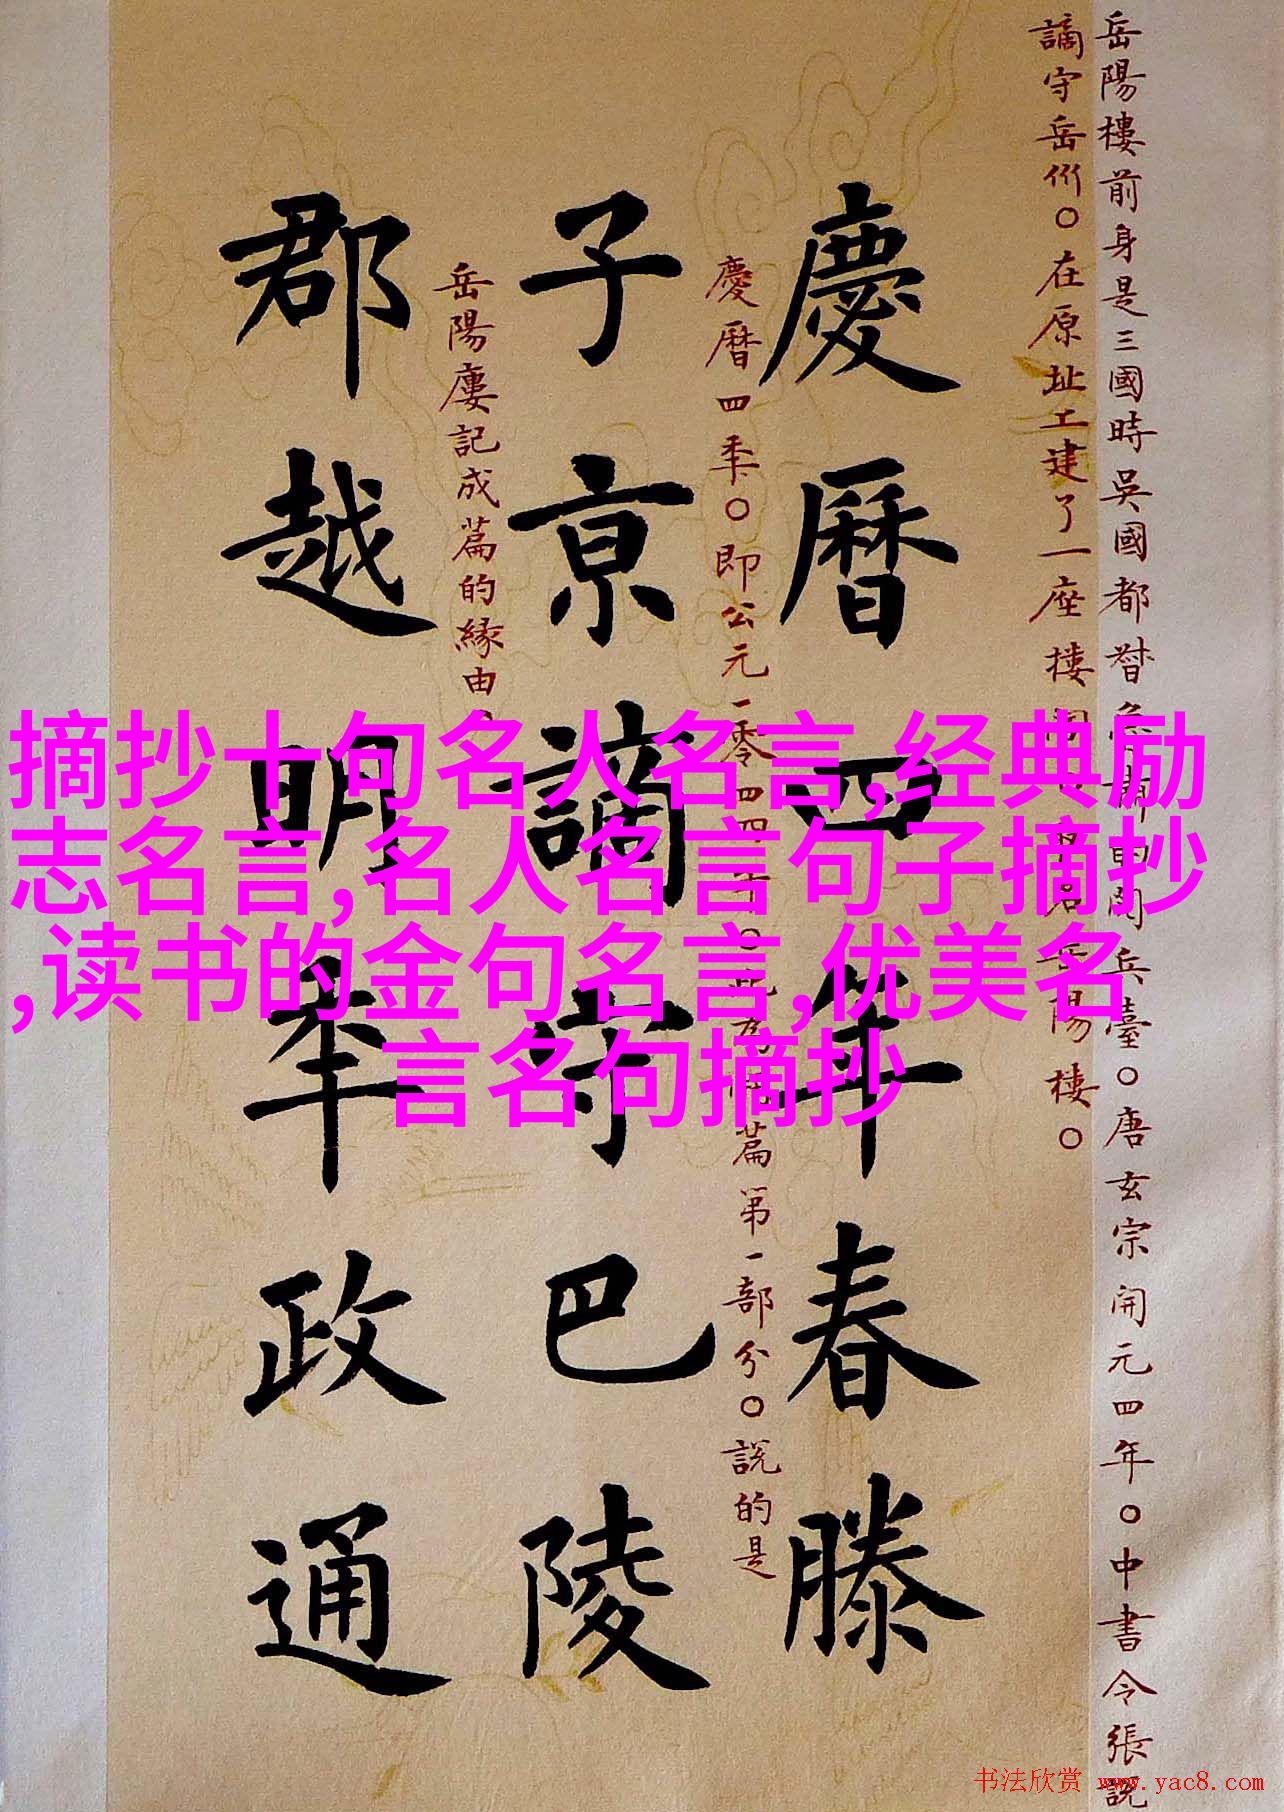 岳陽樓前身是三國時吳國都督魯肅的閱兵臺○唐玄宗開元四年○中書令張説
謫守岳州○在原址工建了一座樓閣
陽樓○
慶曆四年春滕
慶曆四秊○即公元一零四四
篇第一部份○説的是
子京謫守巴陵
岳陽廔記成篇的緣由
郡越明秊政通
摘抄十句名人名言,经典励
志名言,名人名言句子摘抄
,读书的金句名言,优美名
言名句摘抄
书法欣赏 www.yac8.com